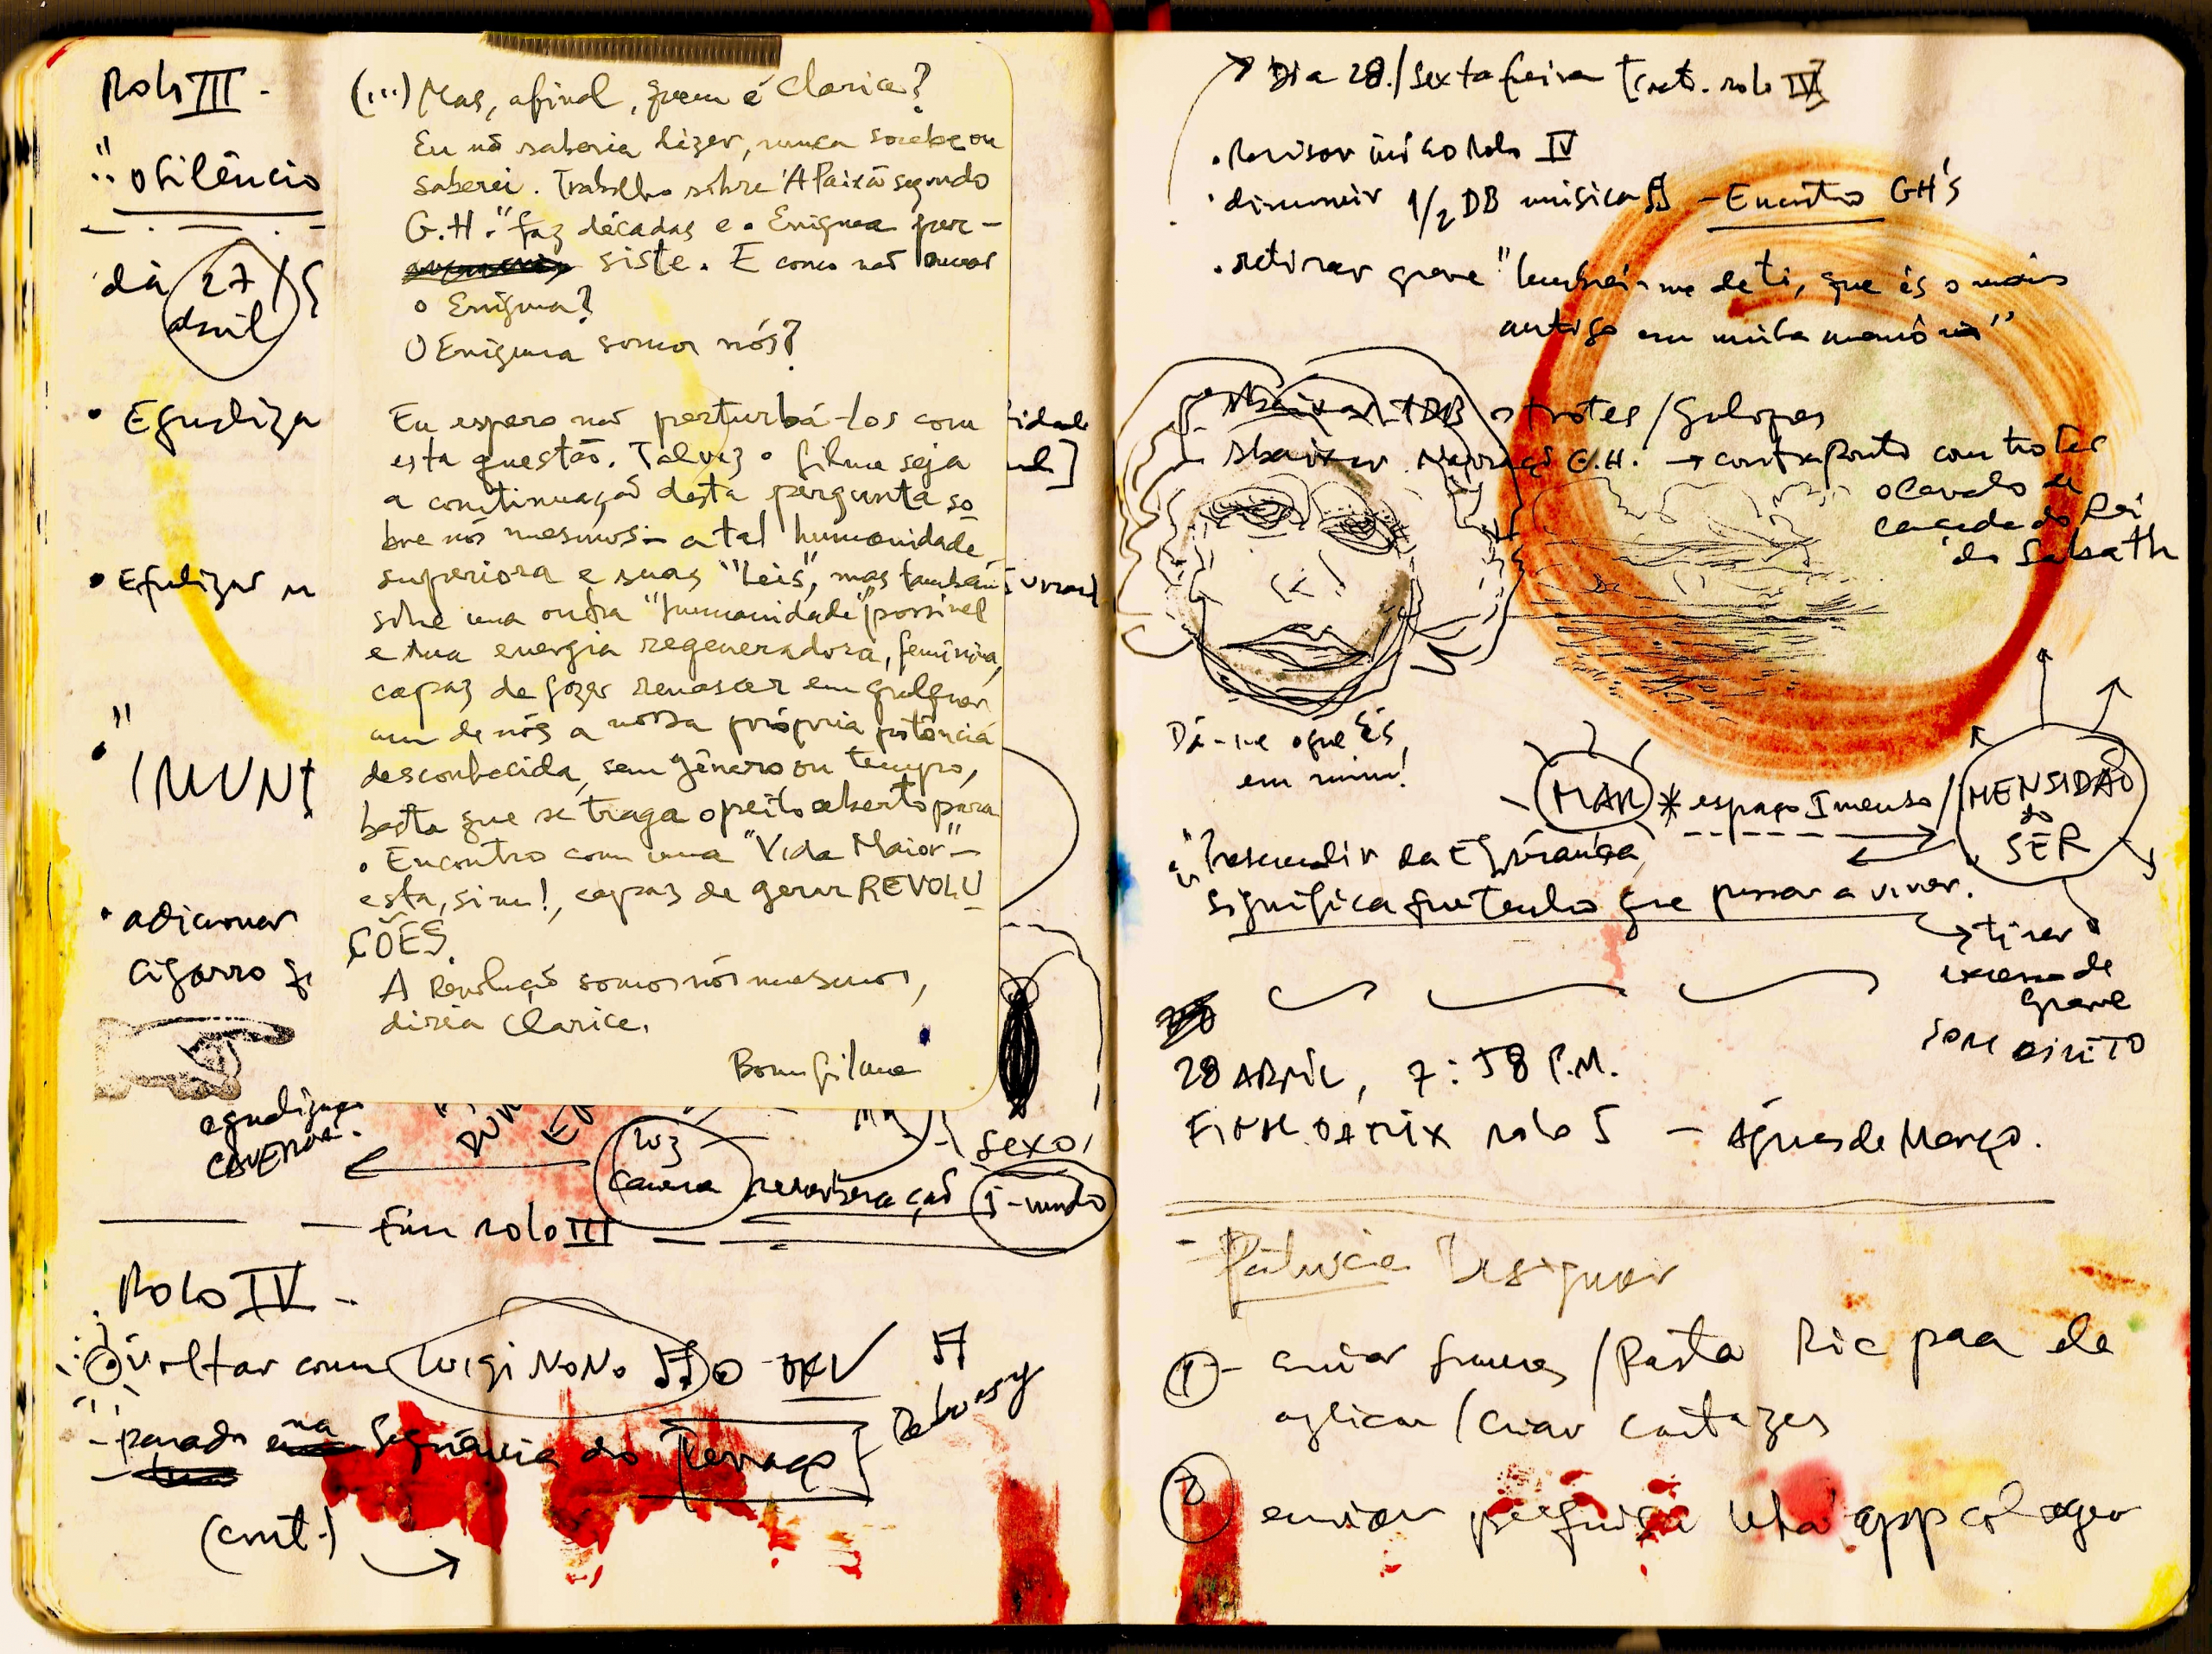 Rolo III -
"o Silêncio
dia 27
abril
• Equaliza
• Equalizar
"
IMUN
• adicionar
cigarro
equalização
CAVERNA.
(...) Mas, afinal, quem é Clarice?
Eu não saberia dizer, nunca soube ou
saberei. Trabalho sôbre "A Paixão segundo
G.H." faz décadas e o Enigma per-
siste. E como não amar
o Enigma?
O Enigma somos nós?
Eu espero não perturbá-los com
esta questão. Talvez o filme seja
a continuação desta pergunta so
bre nós mesmos:- a tal humanidade
superiora e suas "leis", mas também
sôbre uma outra "humanidade" possível
e sua energia regeneradora, feminina,
capaz de fazer renascer em qualquer
um de nós a nossa própria potência
desconhecida, sem gênero ou tempo,
basta que se traga o peito aberto para
o Encontro com uma "Vida Maior" -
esta, sim!, capaz de gerar REVOLU
ÇÕES.
A Revolução somos nós mesmos,
diria Clarice.
Bom filme
luz
Caverna
reverberação
sexo
I-mundo
Fim rolo III
Rolo IV -
voltar com Luigi NoNo OK
Debussy
- parado na Sequência do Terraço
(cont.)
Dia 28./Sexta feira [cont. rolo IV]
• Revisar início Rolo IV
• diminuir 1/2 DB música - Encontro GH's
• retirar grave "lembrei-me de ti, que és o mais
antigo em minha memória"
abaixar 1DB os trotes/Galopes
abaixar Narração G.H. → contraponto com trotes
o Cavalo de
caçada do Rei
do Sabath
Dá-me o que És
em mim!
MAR * espaço Imenso/IMENSIDÃO
do
SER
"Prescindir da Esperança
significa que tenho que passar a viver.
→ tirar
excesso de
grave
SOM DIRETO
28 ABRIL, 7:58 P.M.
FINAL DA MIX rolo 5 - Águas de Março.
- Patrícia Designer
1 - enviar frames/Pasta Ric para ela
aplicar/criar cartazes
2 enviar pesquisa